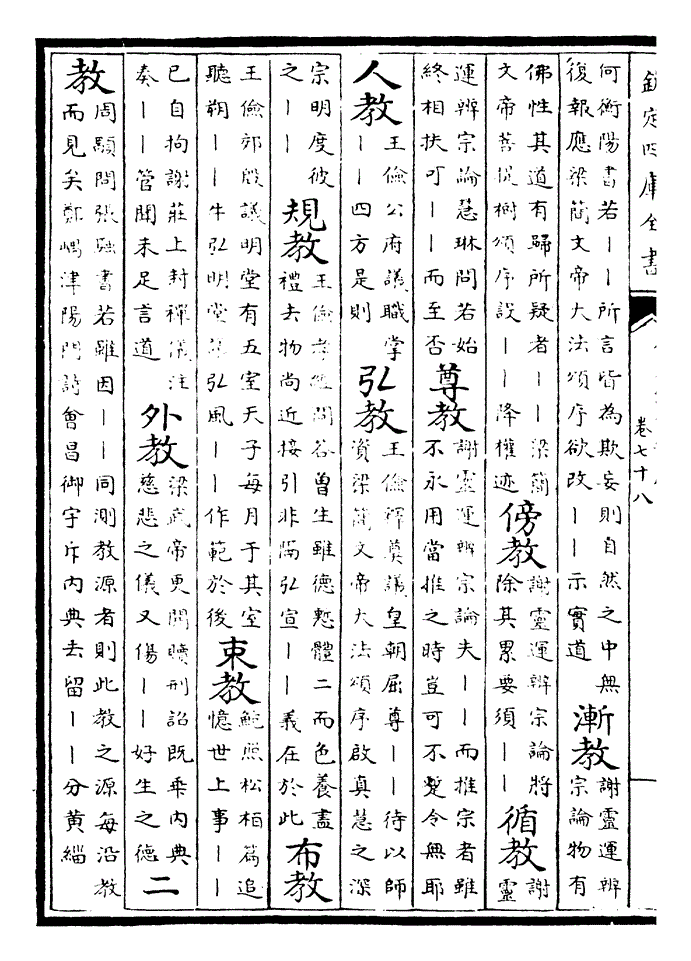 欽定四庫全書
卷七十八
何衡陽書若丨丨所言皆為欺妄則自然之中無
復報應梁簡文帝大法頌序欲改丨丨示實道
漸教
謝靈運辨
宗論物有
佛性其道有歸所疑者丨丨梁簡
文帝菩提樹頌序設丨丨降權迹
傍教
謝靈運辨宗論將
除其累要須丨丨
循教
謝
靈
運辨宗論慧琳問若始
終相扶可丨丨而至否
尊教
謝靈運辨宗論夫丨丨而推宗者雖
不永用當推之時豈可不蹔令無耶
人教
王儉公府議職掌
丨丨四方是則
弘教
王儉釋奠議皇朝屈尊丨丨待以師
資梁簡文帝大法頌序啟真慧之深
宗明度彼
之丨丨
規教
王儉孝經問答曾生雖德慙體二而色養盡
禮去物尚近接引非隔弘宣丨丨義在於此
布教
王儉郊殷議明堂有五室天子每月于其室
聽朔丨丨牛弘明堂議弘風丨丨作範於後
束教
鮑照松柏篇追
憶世上事丨丨
已自拘謝莊上封禪儀注
奏丨丨管聞未足言道
外教
梁武帝更開贖刑詔既乘內典
慈悲之儀又傷丨丨好生之德
二
教
周顒問張融書若雖因丨丨同測教源者則此教之源每沿教
而見矣鄭嵎津陽門詩會昌御宇斥內典去留丨丨分黃緇